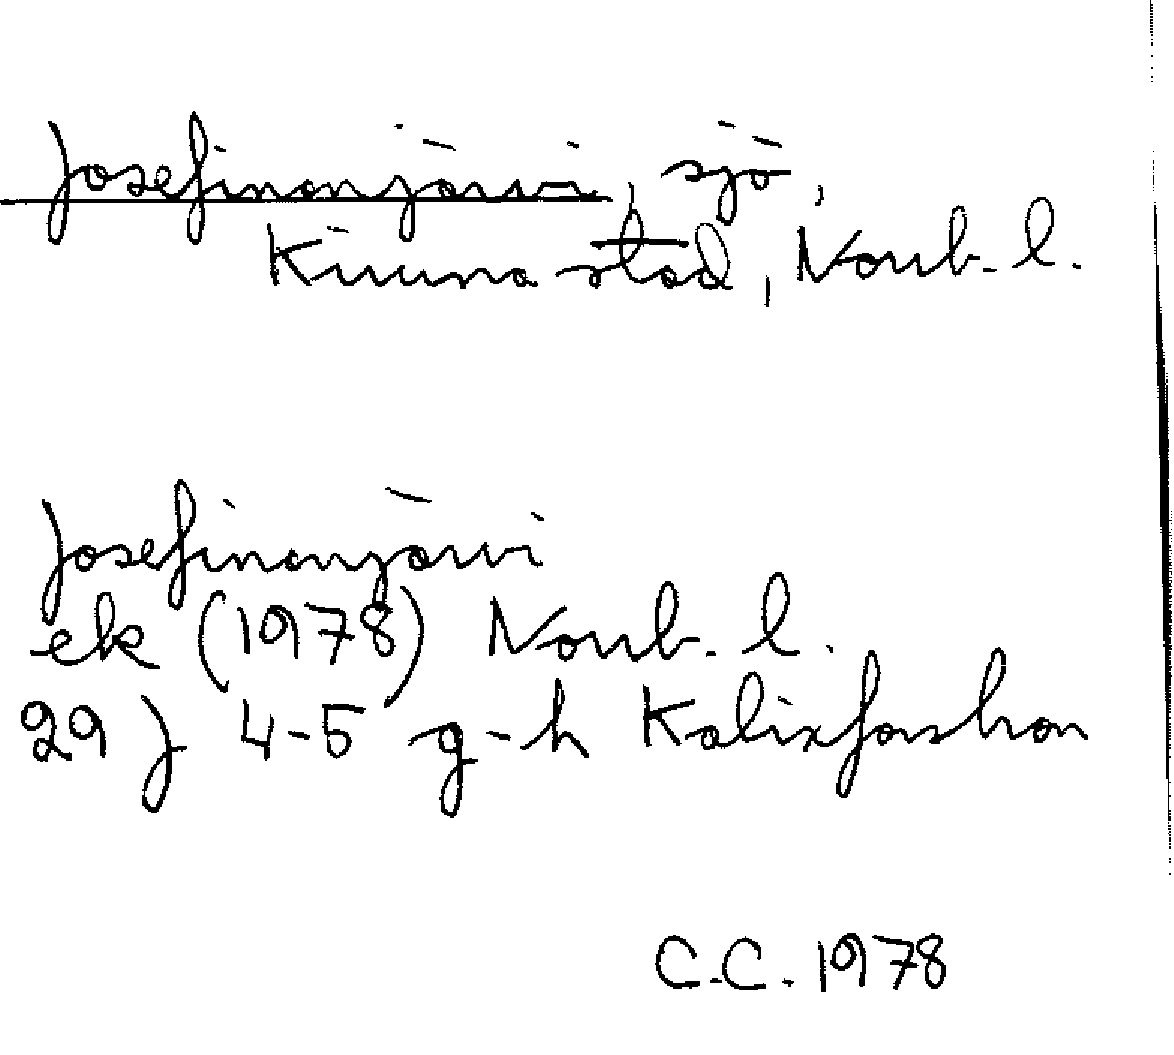 Josefinanjärvi, sjö,
Kiruna stad, Norrb. l.
Josefinanjärvi
ek (1978) Norrb. l.
29 J 4-5 g-h Kalixforsbron
C.C. 1978